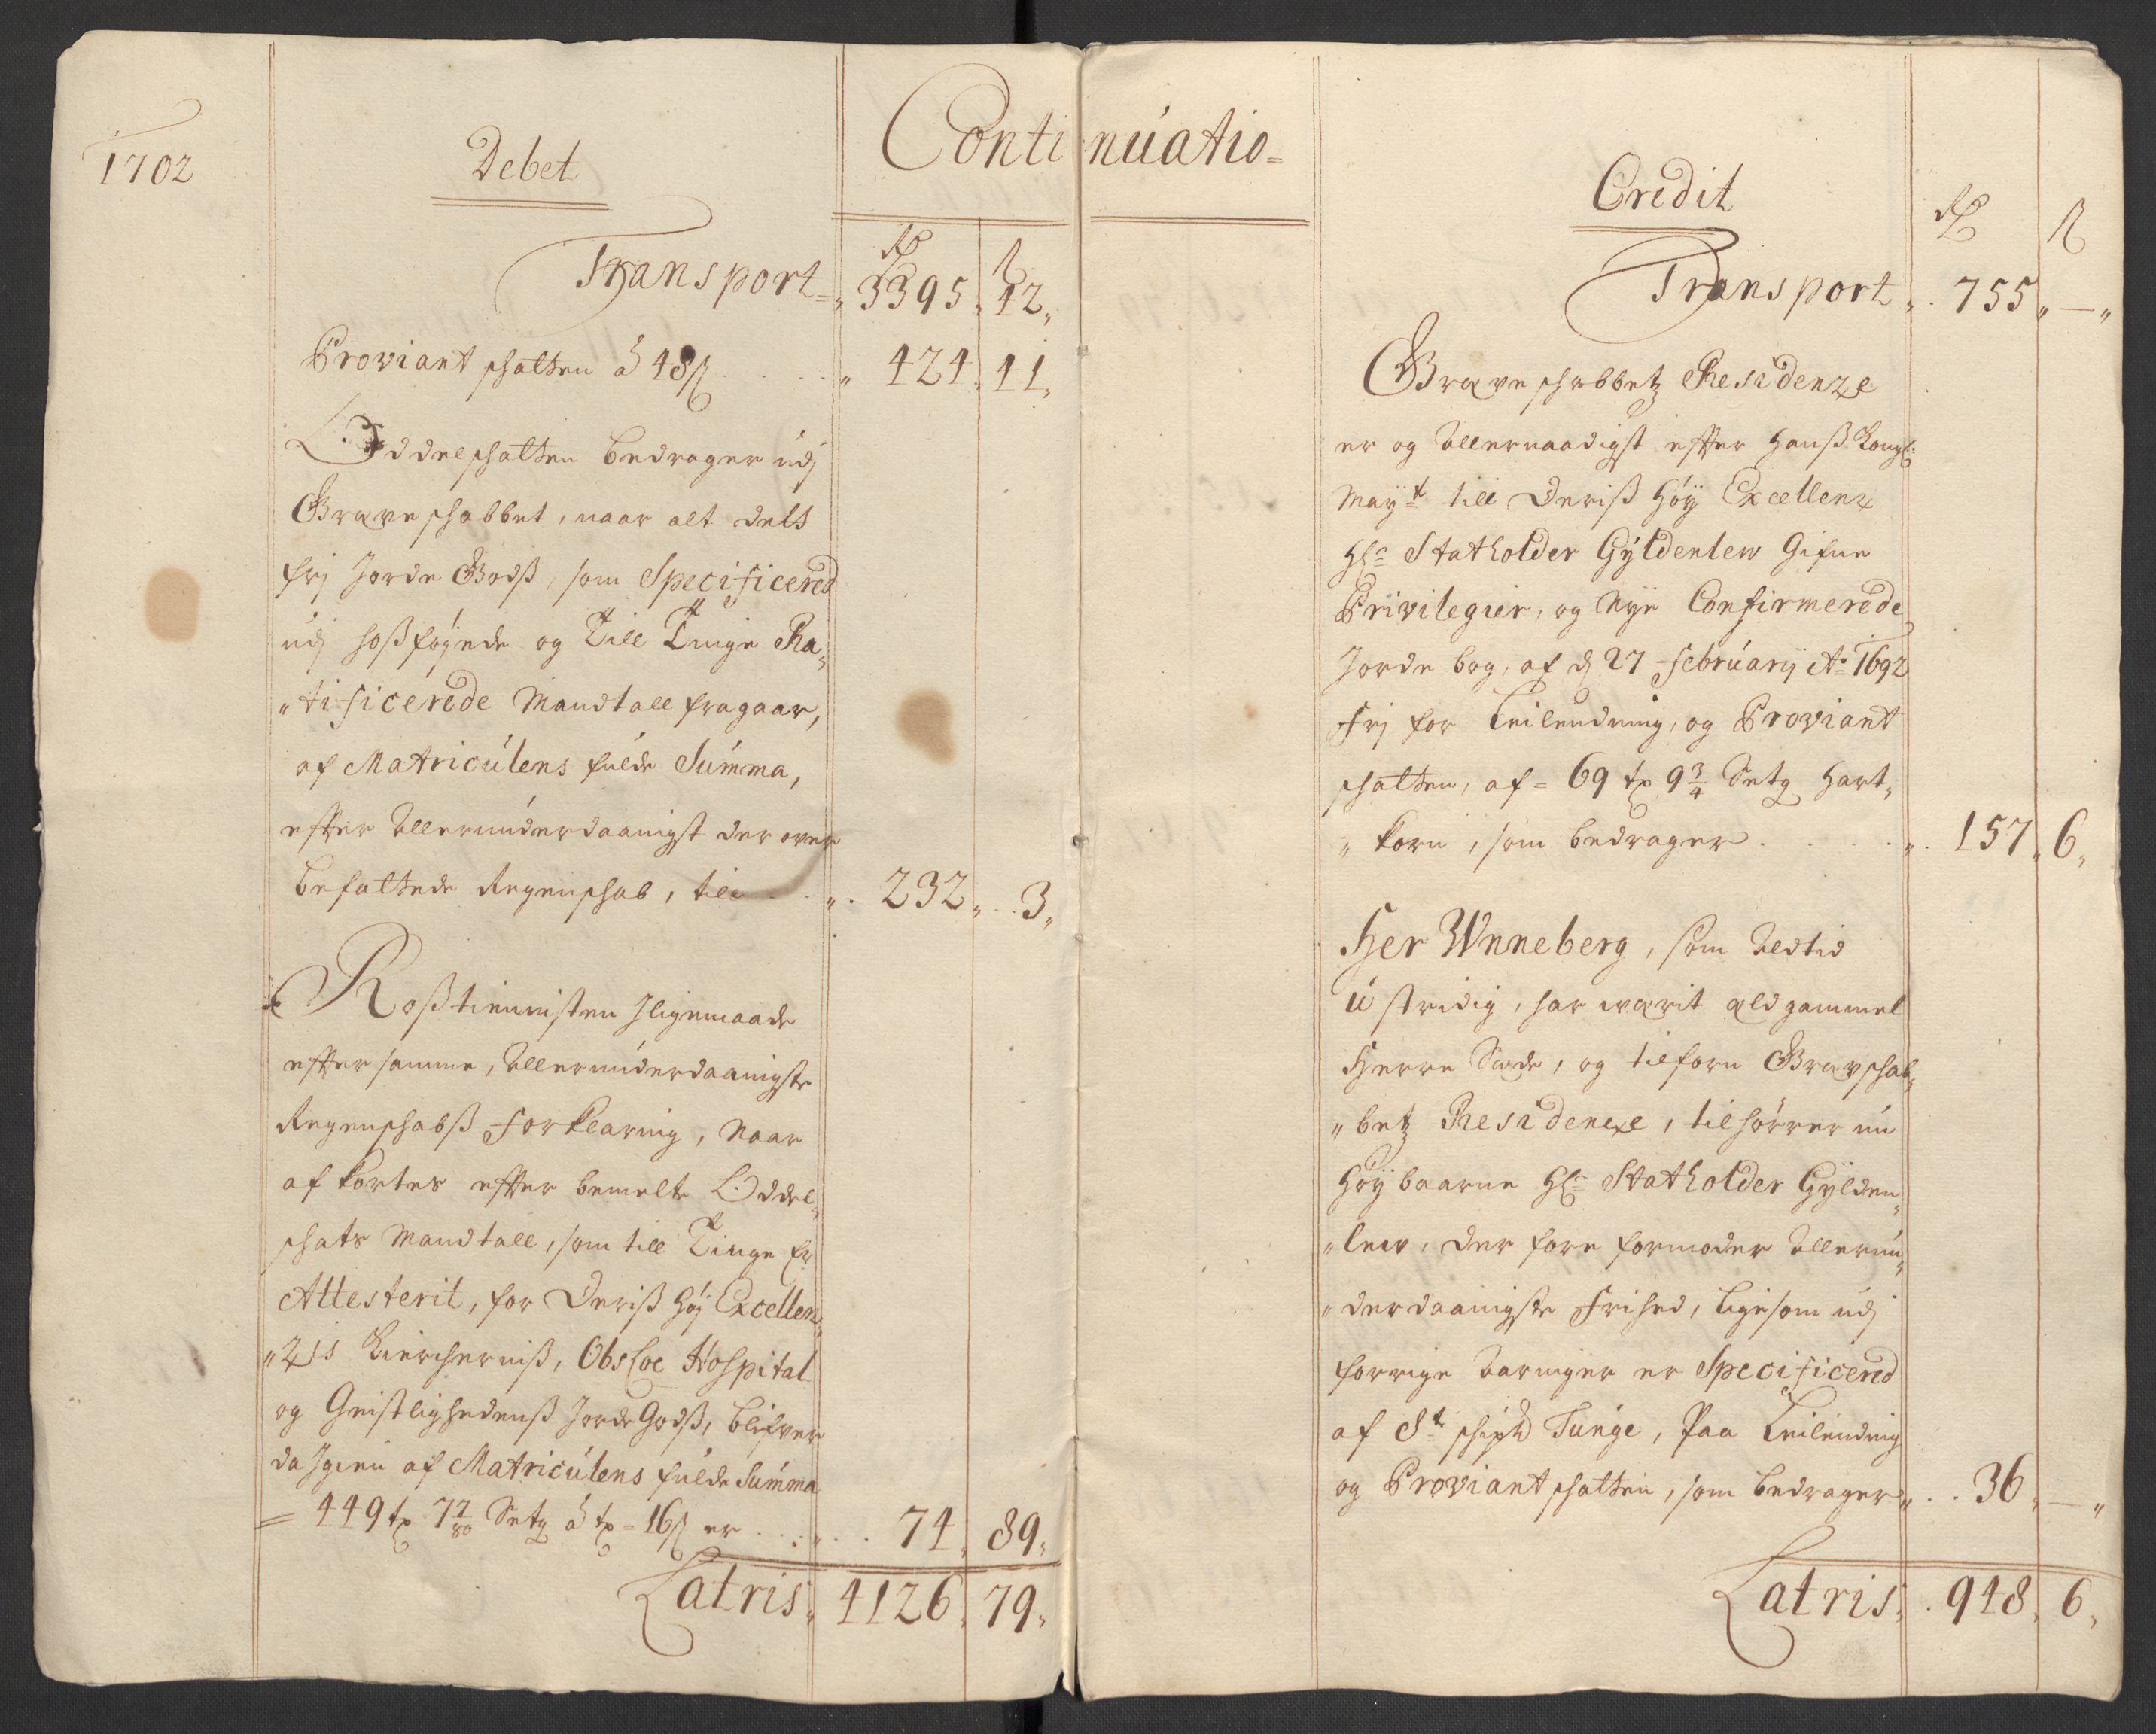 1702
Continuatio
Debet
Rdr ß
Transport 3395 42
Proviant skatten á 48 ß 424 41
Oddelskatten bedrager udj
Grave skabbet, naar alt dets
frj Jorde Godß, som Specificered
udj hoßføjede og Till Tinge Ra„
„tificerede Mandtall fragaar,
af Matriculens fulde Summa,
efter Allerunderdaanigst der over
befattede Regenskab, till 232 3
Roßtienisten Jligemaade
efter samme, Allerunderdaanigste
Regenskabß Forklaring, Naar
afkortes efter bemelte Oddel„
skats Mandtall, som till Tinge Er
Attesterit, for Deriß høj Excellen„
„zis Kiercherniß, Obsloe Hospital
og Geistlighedenß Jorde Godß, blifver
da Jgien af Matriculens fulde Summa
= 449 tr 7 4/80 Setg á tr = 16 ß er 74 89
Latris 4126 79
Credit
Rdr ß
Transport 755 —
Grave skabbetz Residenze
er og Allernaadigst efter Hanß Kongl:
Mayt till Deriß Høy Excellenz
Hr Statholder Gÿldenlew Gifne
Privilegier, og Nye Confirmerede
Jorde bog, af d 27 Februarij Ao 1692
Frj for Leilending, og Proviant
skatten, af = 69 tr 9 3/4 Setg Hart„
„korn, som bedrager 157 6
Her Wnneberg, som Altid
ustridig, har wærit ald gammel
Herre Sæde, og tilforn Gravskab„
„betz Residenze, tilhörrer nu
Høybaarne Hr Statholder Gÿlden„
„lew, der fore formoder Allerun„
„derdaanigste Frihed, ligesom udj
forrige Aaringer er Specificered
af 8t skipd Tunge, Paa Leilending
og Proviant skatten, som bedrager 36 —
Latris 948 6